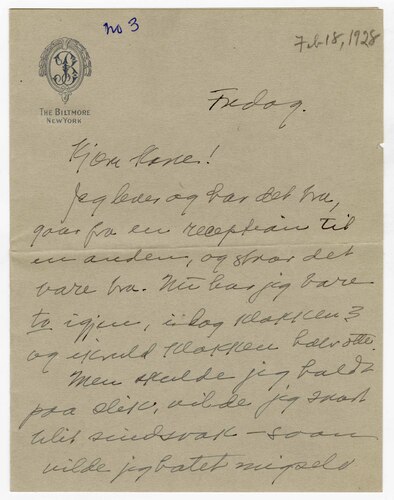 no 3
Feb 18, 1928
B
THE BILTMORE
NEW YORK
Fredag.
Kjære Hanne!
Jeg lever og har det bra,
gaar fra en reception til
en anden, og staar det
bare bra. Nu har jeg bare
to igjen, idag klokken 3
og ikveld klokken halv otte.
Men skulde jeg holdt
paa slik, vilde jeg snart
blit sindsvak - saan
vilde jeg hatet mig selv